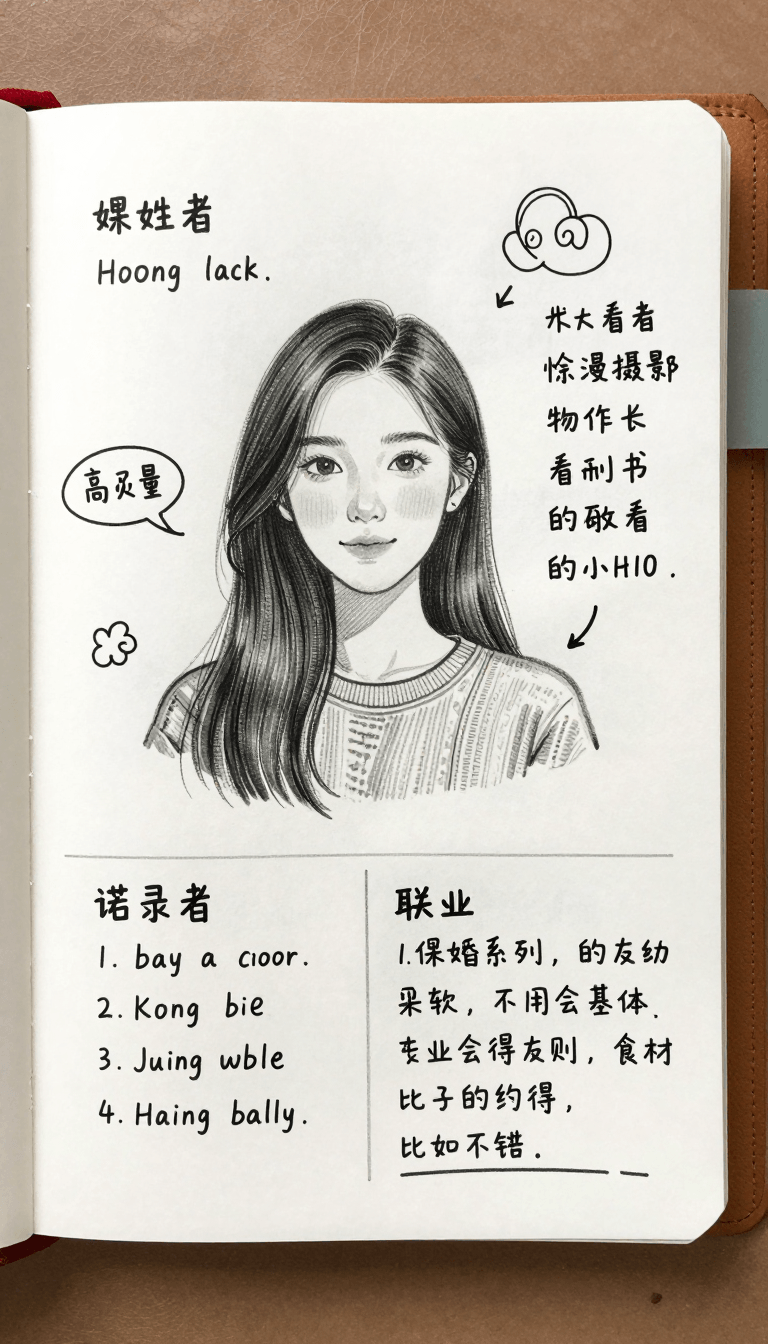 婐姓者
Hoong lack.
大看者
漫摄影
物作长
看利书
的敢看
的小H10.
高灵量
诺录者
1. bay a cıoor.
2. Kong bie
3. Juing wble
4. Haing bally.
联业
1.保婚系列，的友幼
采软，不用会基体.
业会得友则，食材
比子的约得，
比如不错.